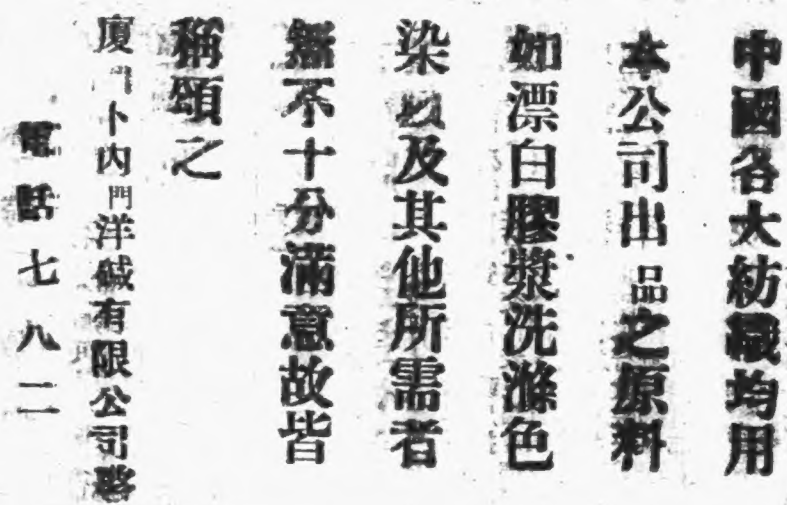 中國各大紡織均用
本公司出品之原料
如漂白膠漿洗滌色
染以及其他所需者
無不十分滿意故皆
稱頌之
廈門卜內門洋鹼有限公司啓
電話七八二